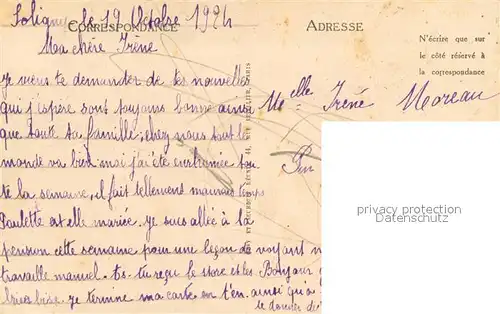 Soligny le 19 Octobre 1924
CORRESPONDANCE
Ma chère Irène
je viens te demander de tes nouvelles
qui j'espère sont toujours bonne ainsi
que toute ta famille, chez nous tout le
monde va bien moi j'ai été enrhumée tou
te la semaine, il fait tellement mauvais temps
Paulette est elle mariée. je suis allée à la
pension cette semaine pour une leçon de voyant
travaille manuel. tu reçu le store et les Bonjour
bise. je termine ma carte en t'en. ainsi qu'à
le donner de
ADRESSE
N'écrire que sur
le côté réservé à
la correspondance
Melle Irène Moreau
privacy protection